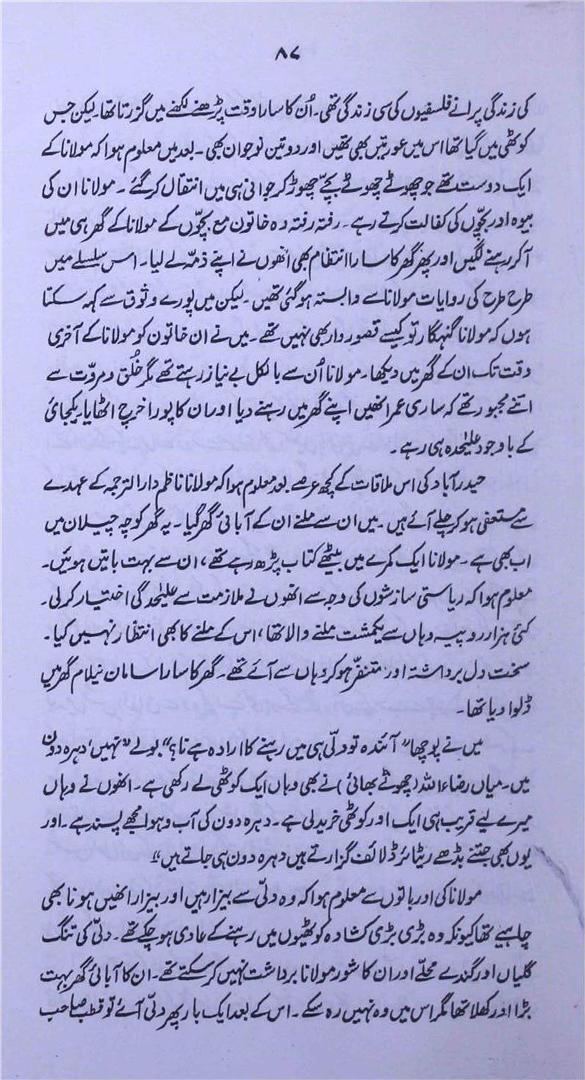 ۸۷
کی زندگی پرانے فلسفیوں کی سی زندگی تھی۔ اُن کا سارا وقت پڑھنے لکھنے میں گزرتا تھا۔ لیکن جس
کوٹھی میں گیا تھا اس میں عورتیں بھی تھیں اور دو تین نوجوان بھی۔ بعد میں معلوم ہوا کہ مولانا کے
ایک دوست تھے جو چھوٹے چھوٹے بچّے چھوڑ کر جوانی ہی میں انتقال کر گئے۔ مولانا ان کی
بیوہ اور بچّوں کی کفالت کرتے رہے۔ رفتہ رفتہ وہ خاتون مع بچّوں کے مولانا کے گھر ہی میں
آکر رہنے لگیں اور پھر گھر کا سارا انتظام بھی انھوں نے اپنے ذمّہ لے لیا۔ اس سلسلے میں
طرح طرح کی روایات مولانا سے وابستہ ہوگئی تھیں۔ لیکن میں پورے وثوق سے کہہ سکتا
ہوں کہ مولانا گنہگار تو کیسے قصوردار بھی نہیں تھے۔ میں نے ان خاتون کو مولانا کے آخری
وقت تک ان کے گھر میں دیکھا۔ مولانا اُن سے بالکل بے نیاز رہتے تھے مگر خُلق و مروّت سے
اتنے مجبور تھے کہ ساری عمر انھیں اپنے گھر میں رہنے دیا اور ان کا پورا خرچ اٹھایا، یکجائی
کے باوجود علیٰحدہ ہی رہے۔
حیدرآباد کی اس ملاقات کے کچھ عرصے بعد معلوم ہوا کہ مولانا ناظم دارالترجمہ کے عہدے
سے مستعفی ہو کر چلے آئے ہیں۔ میں ان سے ملنے ان کے آبائی گھر گیا۔ یہ گھر کوچہ چیلان میں
اب بھی ہے۔ مولانا ایک کمرے میں بیٹھے کتاب پڑھ رہے تھے، ان سے بہت باتیں ہوئیں۔
معلوم ہوا کہ ریاستی سازشوں کی وجہ سے انھوں نے ملازمت سے علیٰحدگی اختیار کر لی۔
کئی ہزار روپیہ وہاں سے یکمشت ملنے والا تھا، اس کے ملنے کا بھی انتظار نہیں کیا۔
سخت دل برداشتہ اور متنفّر ہو کر وہاں سے آئے تھے۔ گھر کا سارا سامان نیلام گھر میں
ڈلوا دیا تھا۔
میں نے پوچھا "آئندہ تو دلّی ہی میں رہنے کا ارادہ ہے نا؟" بولے "نہیں، دہرہ دون
میں۔ میاں رضاء اللہ (چھوٹے بھائی) نے بھی وہاں ایک کوٹھی لے رکھی ہے۔ انھوں نے وہاں
میرے لیے قریب ہی ایک اور کوٹھی خرید لی ہے۔ دہرہ دون کی آب و ہوا مجھے پسند ہے۔ اور
یوں بھی جتنے بڈھے ریٹائرڈ لائف گزارتے ہیں دہرہ دون ہی جاتے ہیں"
مولانا کی اور باتوں سے معلوم ہوا کہ وہ دلّی سے بیزار ہیں اور بیزار انھیں ہونا بھی
چاہیے تھا کیونکہ وہ بڑی بڑی کشادہ کوٹھیوں میں رہنے کے عادی ہو چکے تھے۔ دلّی کی تنگ
گلیاں اور گندے محلّے اور ان کا شور مولانا برداشت نہیں کر سکتے تھے۔ ان کا آبائی گھر بہت
بڑا اور کھلا تھا مگر اس میں وہ نہیں رہ سکے۔ اس کے بعد ایک بار پھر دلّی آئے تو قطب صاحب